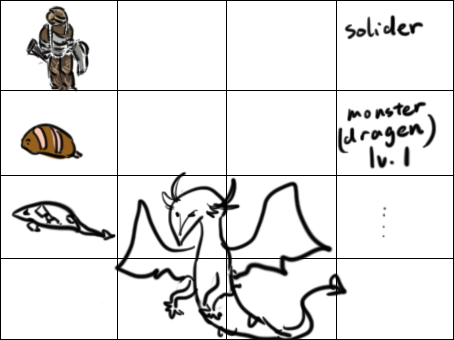 solider
monster
(dragen)
lv. 1
⋮